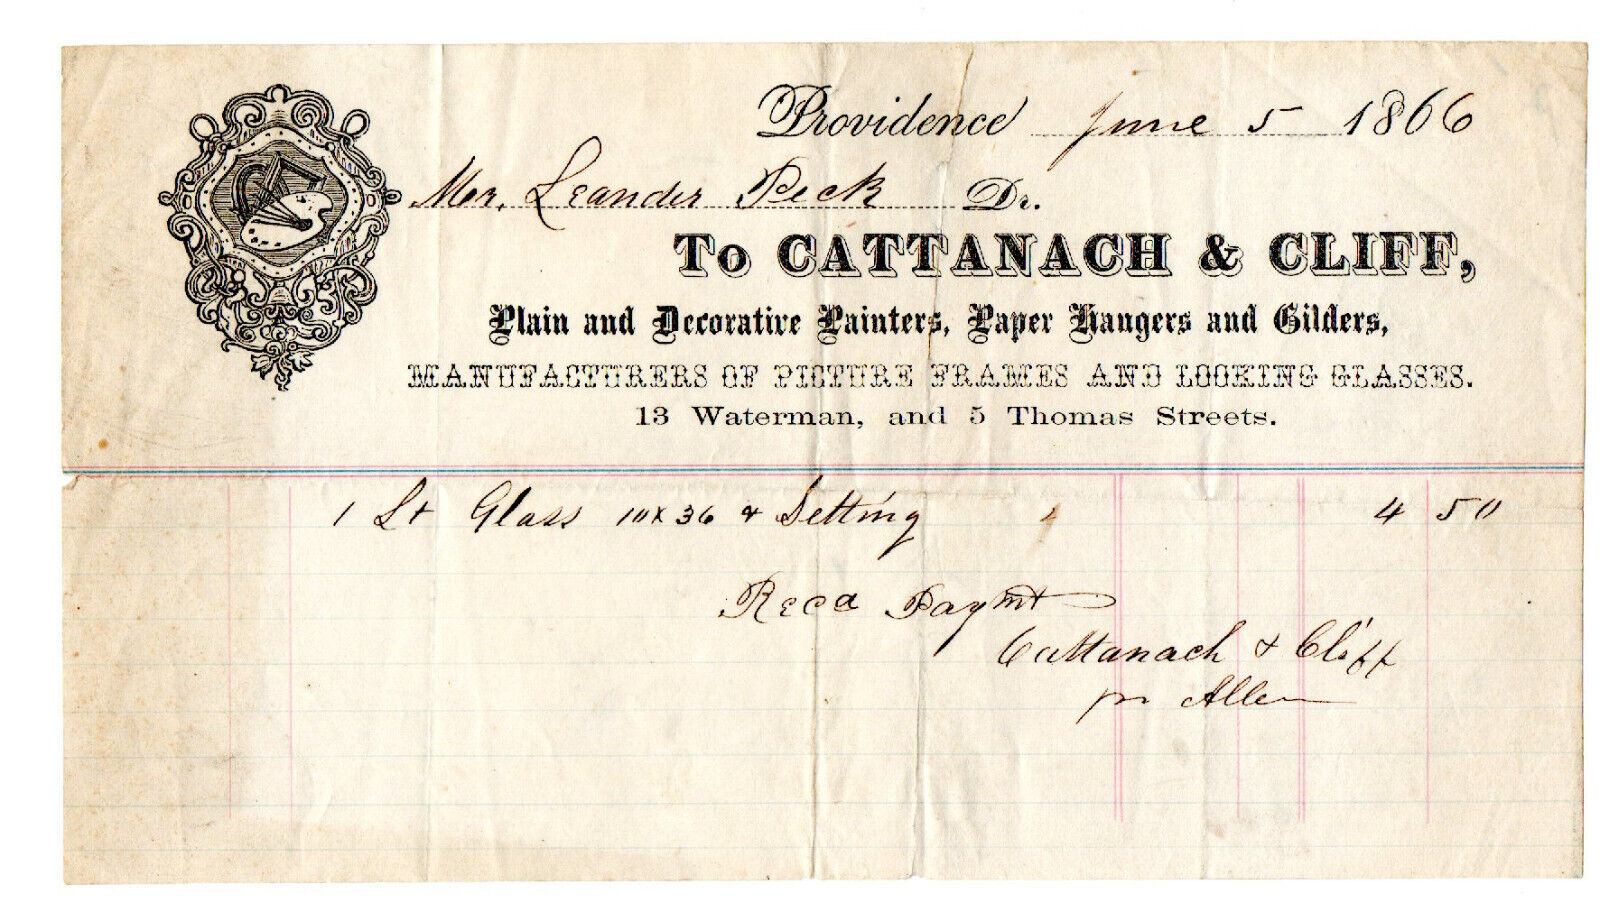 Providence June 5 1866
Mr. Leander Peck Dr.
To CATTANACH & CLIFF,
Plain and Decorative Painters, Paper Hangers and Gilders,
MANUFACTURERS OF PICTURE FRAMES AND LOOKING GLASSES.
13 Waterman, and 5 Thomas Streets.
1 Lt Glass 10x36 & Setting 4 50
Recd Paymt
Cattanach & Cliff
pr Allen